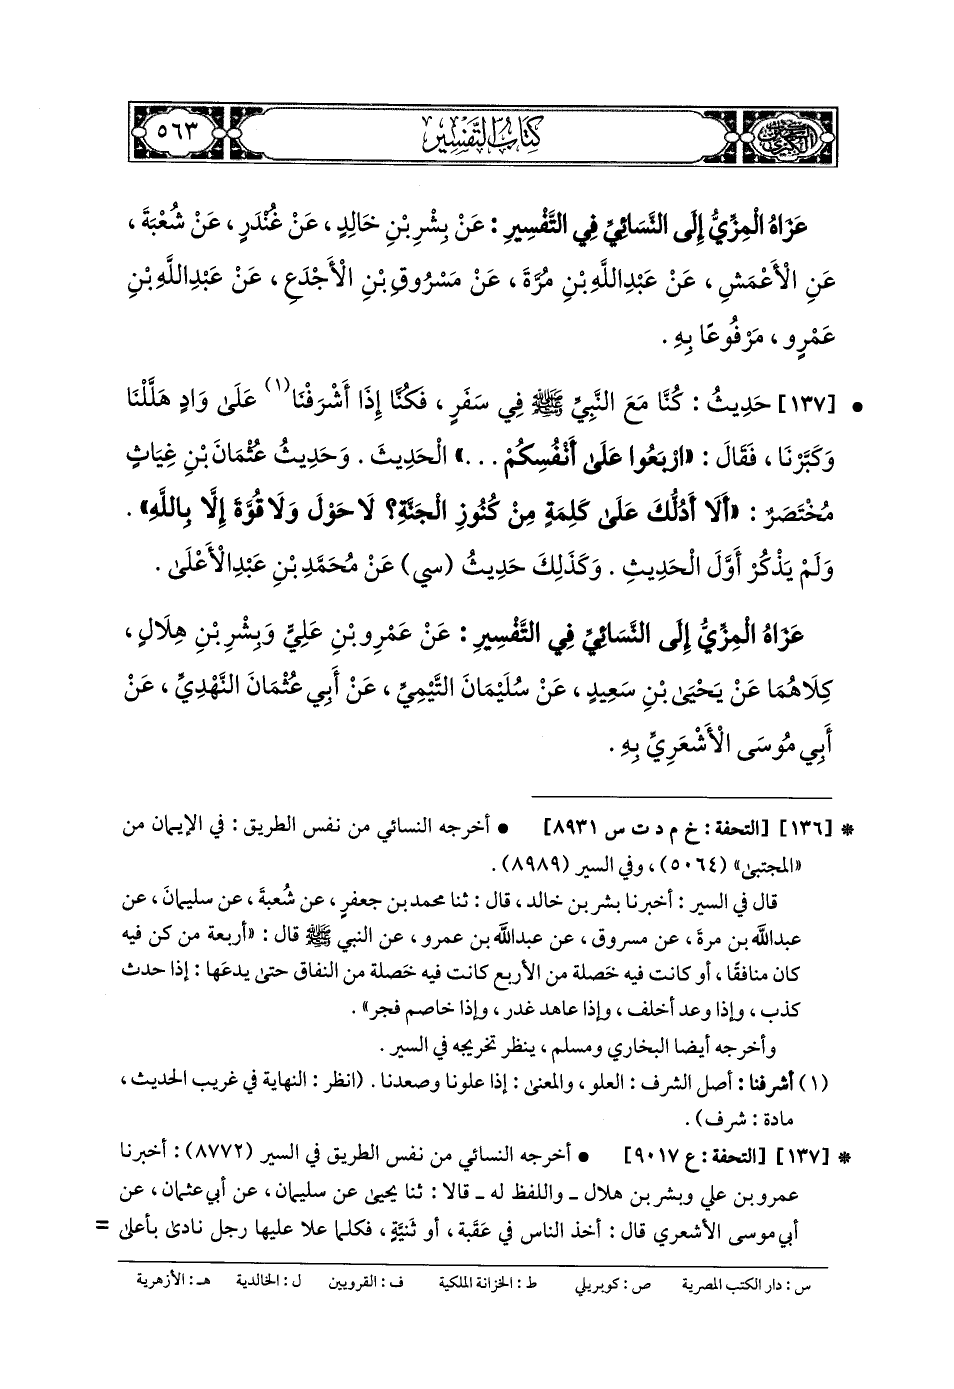 كتاب التفسير
٥٦٣
عَزَاهُ الْمِزِّيُّ إِلَى النَّسَائِيِّ فِي التَّفْسِيرِ : عَنْ بِشْرِ بْنِ خَالِدٍ ، عَنْ غُنْدَرٍ ، عَنْ شُعْبَةَ ،
عَنِ الْأَعْمَشِ ، عَنْ عَبْدِاللَّهِ بْنِ مُرَّةَ ، عَنْ مَسْرُوقِ بْنِ الْأَجْدَعِ ، عَنْ عَبْدِاللَّهِ بْنِ
عَمْرٍو ، مَرْفُوعًا بِهِ .
• [١٣٧] حَدِيثُ : كُنَّا مَعَ النَّبِيِّ ﷺ فِي سَفَرٍ ، فَكُنَّا إِذَا أَشْرَفْنَا(١) عَلَىٰ وَادٍ هَلَّلْنَا
وَكَبَّرْنَا ، فَقَالَ : «ارْبَعُوا عَلَىٰ أَنْفُسِكُمْ ...» الْحَدِيثَ . وَحَدِيثُ عُثْمَانَ بْنِ غِيَاثٍ
مُخْتَصَرٌ : «أَلَا أَدُلُّكَ عَلَىٰ كَلِمَةٍ مِنْ كُنُوزِ الْجَنَّةِ؟ لَا حَوْلَ وَلَا قُوَّةَ إِلَّا بِاللَّهِ» .
وَلَمْ يَذْكُرْ أَوَّلَ الْحَدِيثِ . وَكَذَلِكَ حَدِيثُ (سي) عَنْ مُحَمَّدِ بْنِ عَبْدِالْأَعْلَىٰ .
عَزَاهُ الْمِزِّيُّ إِلَى النَّسَائِيِّ فِي التَّفْسِيرِ : عَنْ عَمْرِو بْنِ عَلِيٍّ وَبِشْرِ بْنِ هِلَالٍ ،
كِلَاهُمَا عَنْ يَحْيَىٰ بْنِ سَعِيدٍ ، عَنْ سُلَيْمَانَ التَّيْمِيِّ ، عَنْ أَبِي عُثْمَانَ النَّهْدِيِّ ، عَنْ
أَبِي مُوسَى الْأَشْعَرِيِّ بِهِ .
* [١٣٦] [التحفة : خ م د ت س ٨٩٣١] • أخرجه النسائي من نفس الطريق : في الإيمان من
«المجتبىٰ» (٥٠٦٤) ، وفي السير (٨٩٨٩) .
قال في السير : أخبرنا بشر بن خالد ، قال : ثنا محمد بن جعفرٍ ، عن شُعبةَ ، عن سليمانَ ، عن
عبداللَّه بن مرةَ ، عن مسروق ، عن عبداللَّه بن عمرو ، عن النبي ﷺ قال : «أربعة من كن فيه
كان منافقًا ، أو كانت فيه خَصلة من الأربع كانت فيه خَصلة من النفاق حتىٰ يدعَها : إذا حدث
كذب ، وإذا وعد أخلف ، وإذا عاهد غدر ، وإذا خاصم فجر» .
وأخرجه أيضا البخاري ومسلم ، ينظر تخريجه في السير .
(١) أشرفنا : أصل الشرف : العلو ، والمعنىٰ : إذا علونا وصعدنا . (انظر : النهاية في غريب الحديث ،
مادة : شرف) .
* [١٣٧] [التحفة : ع ٩٠١٧] • أخرجه النسائي من نفس الطريق في السير (٨٧٧٢) : أخبرنا
عمرو بن علي وبشر بن هلال ــ واللفظ له ــ قالا : ثنا يحيىٰ عن سليمان ، عن أبي عثمان ، عن
أبي موسى الأشعري قال : أخذ الناس في عَقبة ، أو ثَنيَّةٍ ، فكلما علا عليها رجل نادىٰ بأعلىٰ =
س : دار الكتب المصرية ص : كوبريلي ط : الخزانة الملكية ف : القرويين ل : الخالدية هـ : الأزهرية